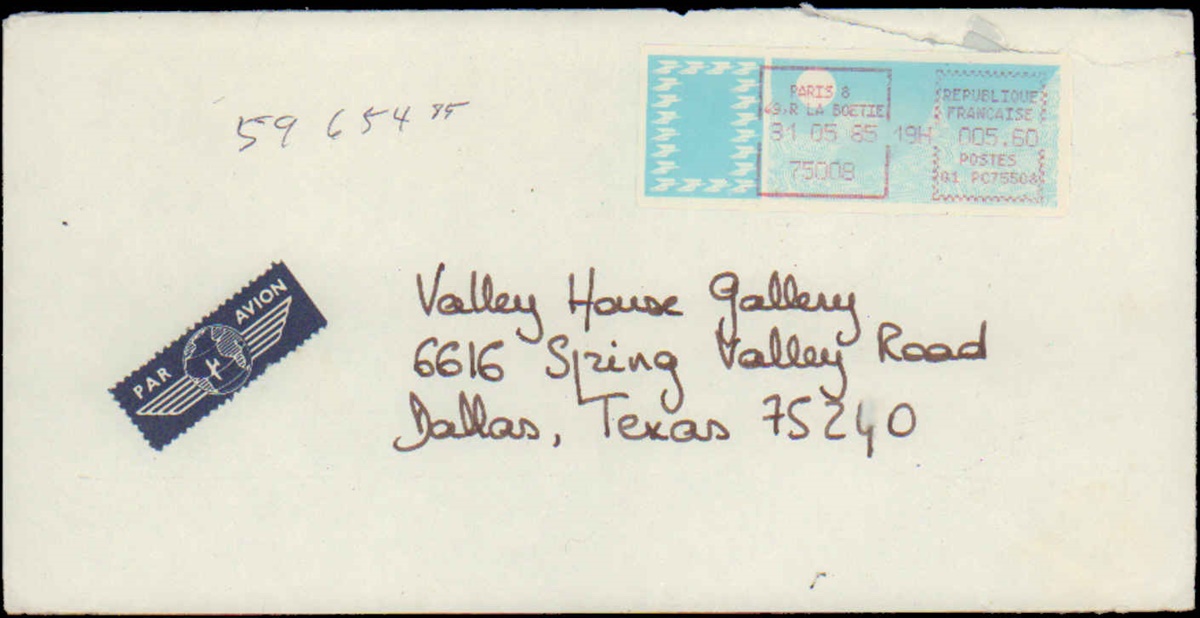 59 654 85
PARIS 8
49.R LA BOETIE
31 05 85 19H
75008
REPUBLIQUE
FRANCAISE
005.60
POSTES
G1 PC75508
PAR AVION
Valley House Gallery
6616 Spring Valley Road
Dallas, Texas 75240